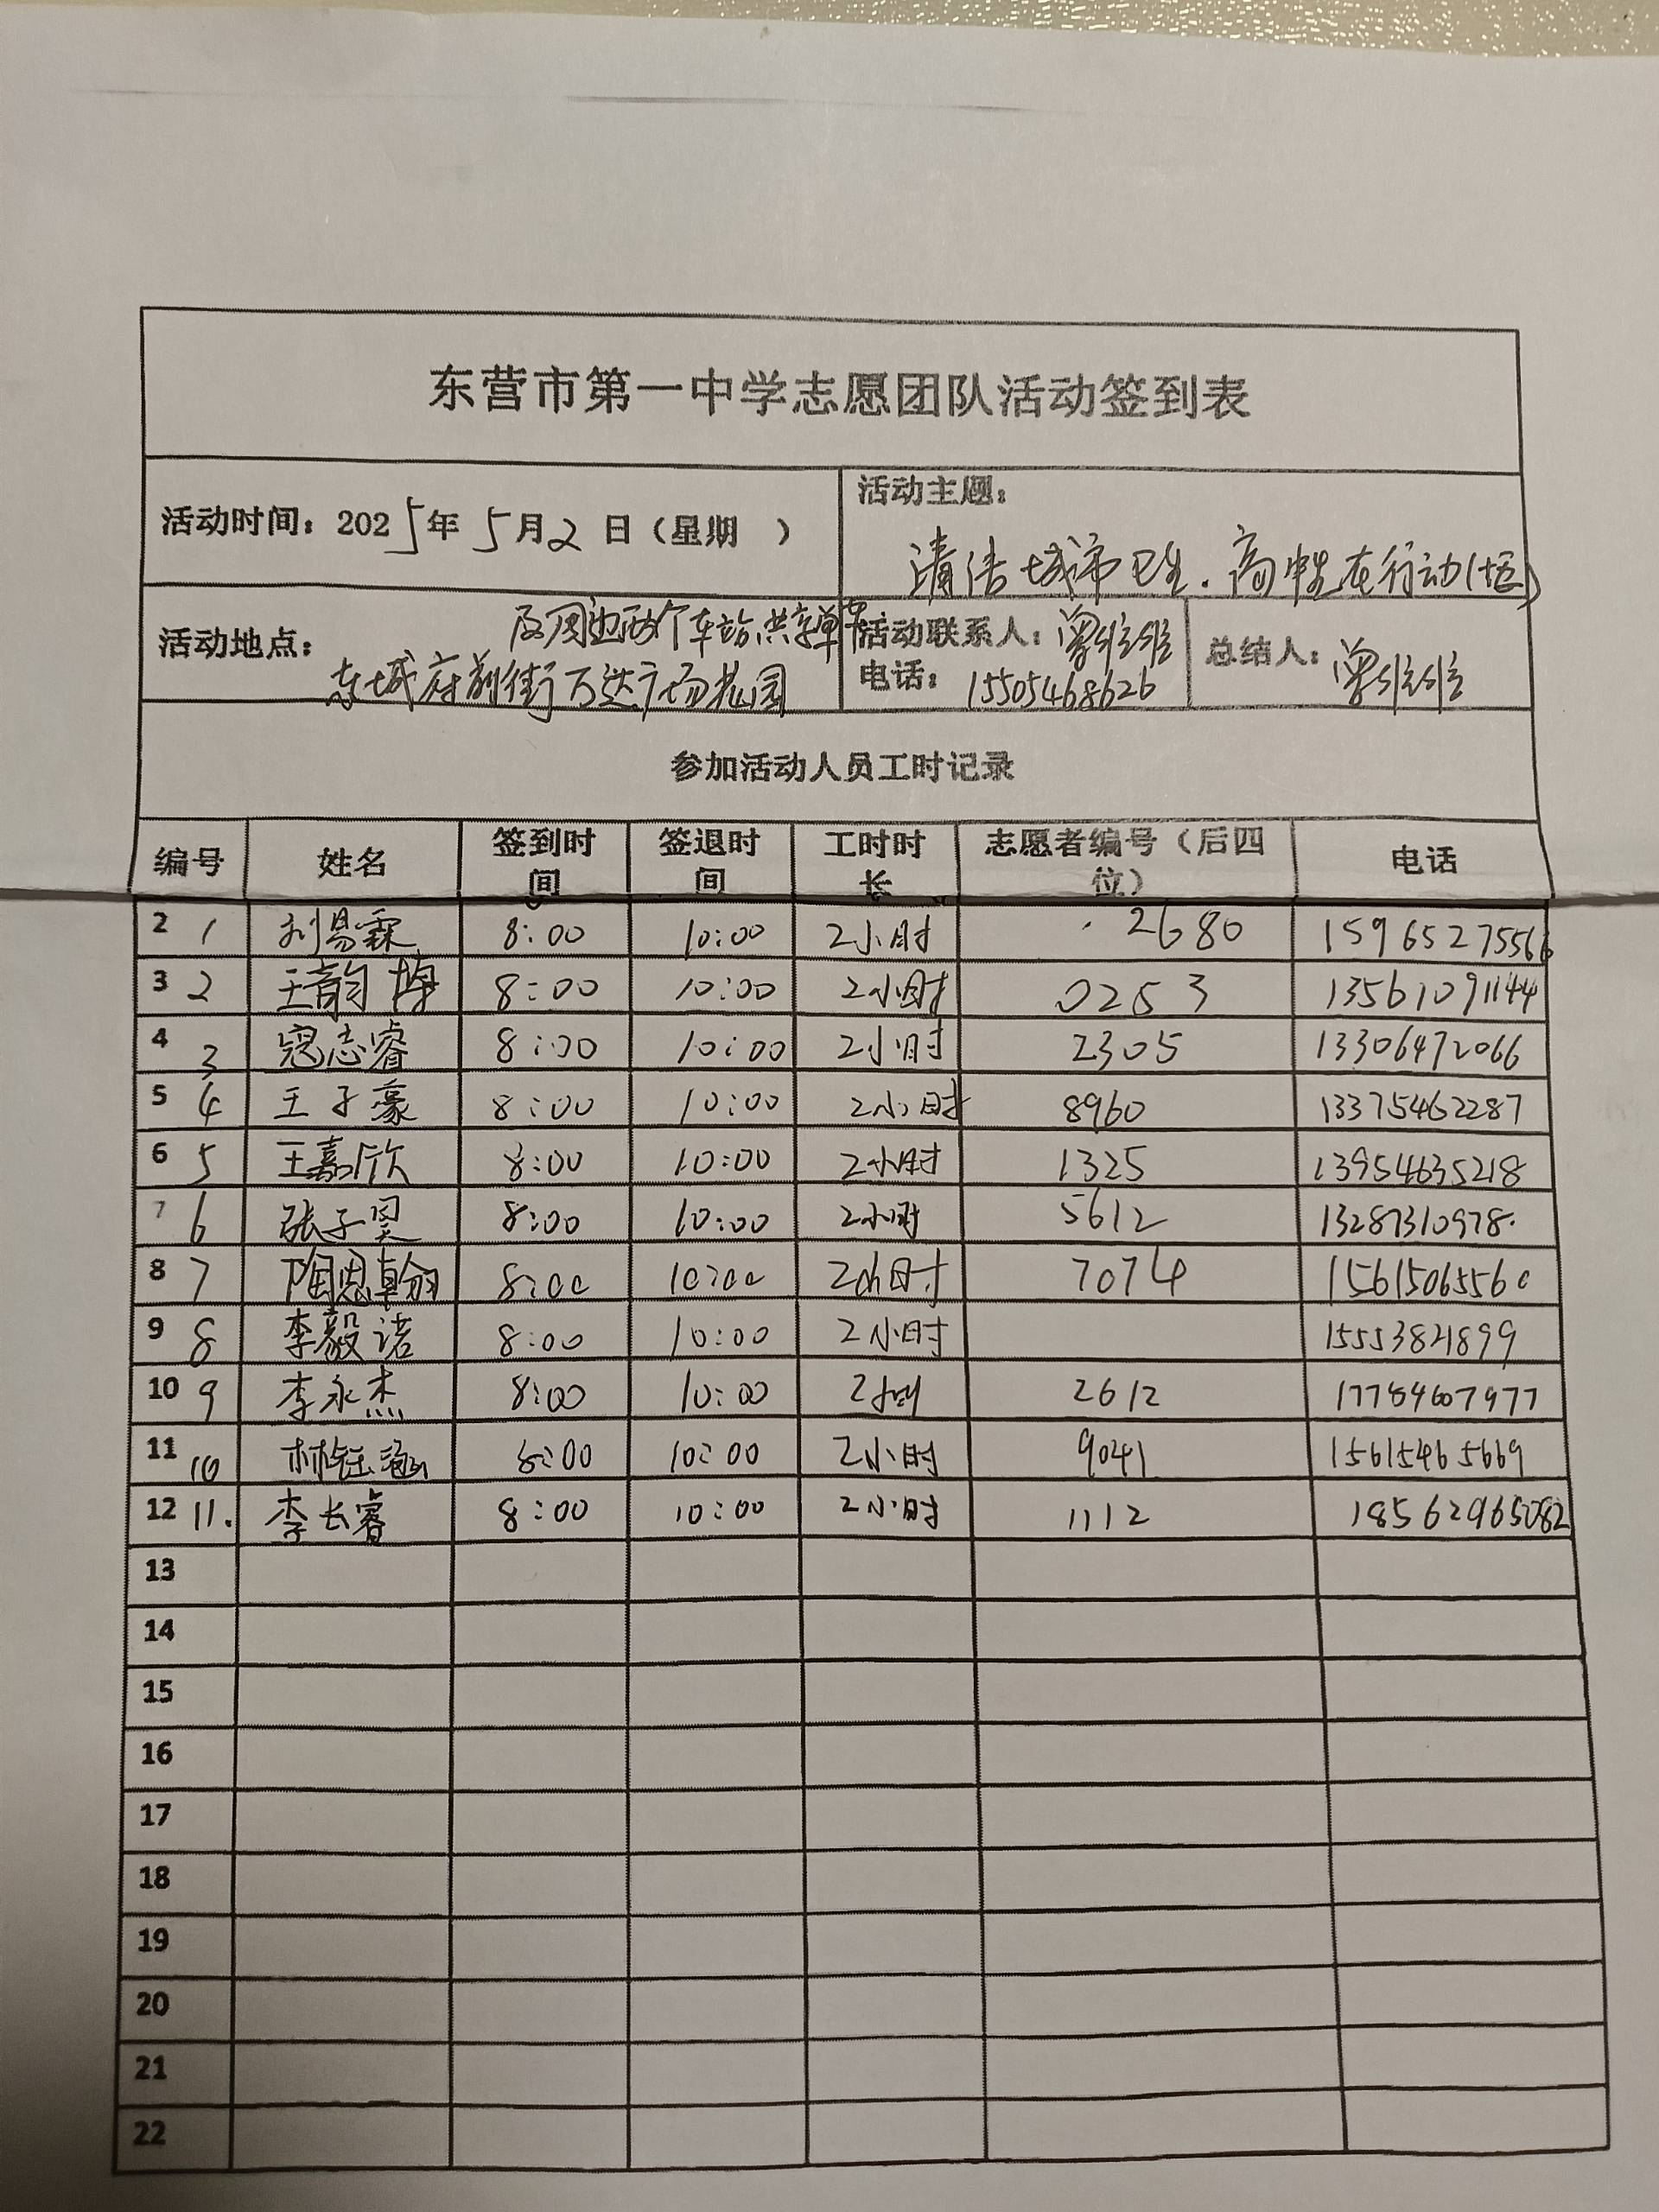 东营市第一中学志愿团队活动签到表
活动时间：2025年 5月2 日（星期　）
活动主题：
清洁城市卫生．高中生在行动
活动地点：
及周边两个车站共享单车
东城府前街万达广场花园
活动联系人：曾维维
电话：15505468626
总结人：曾维维
参加活动人员工时记录
编号 姓名 签到时间 签退时间 工时时长 志愿者编号（后四位） 电话
2 1 刘易霖 8:00 10:00 2小时 2680 15965275566
3 2 王韵博 8:00 10:00 2小时 0253 13561091144
4 3 寇志睿 8:00 10:00 2小时 2305 13306472066
5 4 王子豪 8:00 10:00 2小时 8960 13375462287
6 5 王嘉欣 8:00 10:00 2小时 1325 13954635218
7 6 张子昊 8:00 10:00 2小时 5612 13287310978.
8 7 陶恩翰 8:00 10:00 2小时 7074 15615065560
9 8 李毅诺 8:00 10:00 2小时 15553821899
10 9 李永杰 8:00 10:00 2小时 2612 17784607977
11 10 林钰涵 8:00 10:00 2小时 9041 15615465669
12 11. 李长睿 8:00 10:00 2小时 1112 18562965082
13
14
15
16
17
18
19
20
21
22